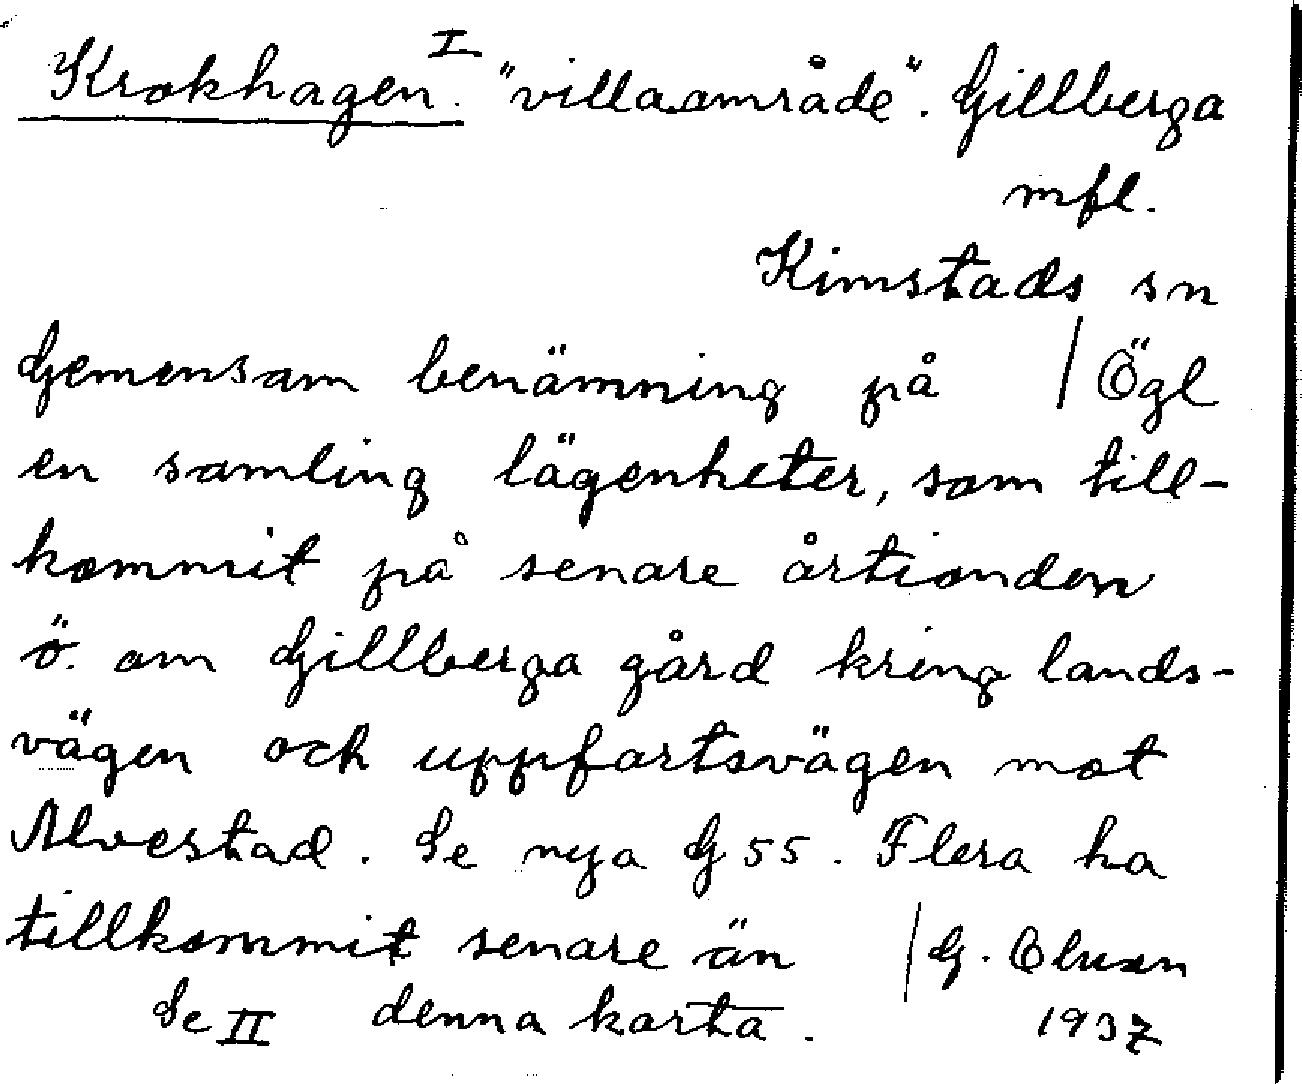 Krokhagen. I "villaområde". Gillberga
mfl.
Kimstads sn
Gemensam benämning på / Ögl
en samling lägenheter, som till-
kommit på senare årtionden
ö. om Gillberga gård kring lands-
vägen och uppfartsvägen mot
Alvestad. Se nya G 55. Flera ha
tillkommit senare än / G.
Se II denna karta. 1937